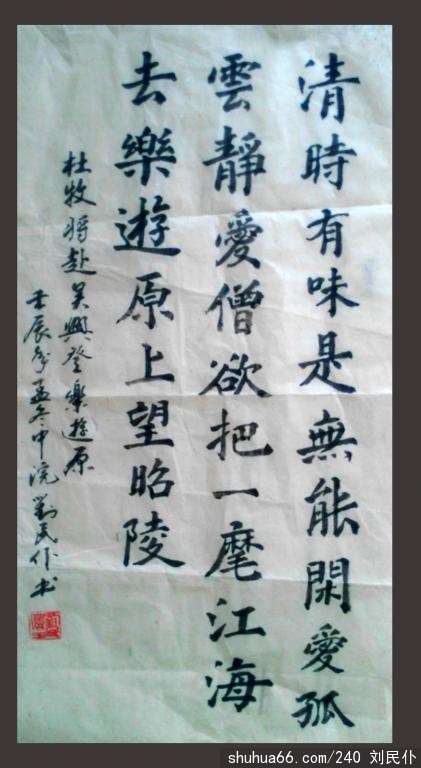 清時有味是無能閑愛孤
雲靜愛僧欲把一麾江海
去樂遊原上望昭陵
杜牧將赴吴興登樂遊原
壬辰年孟冬中浣劉民仆书
shuhua66.com/240 刘民仆